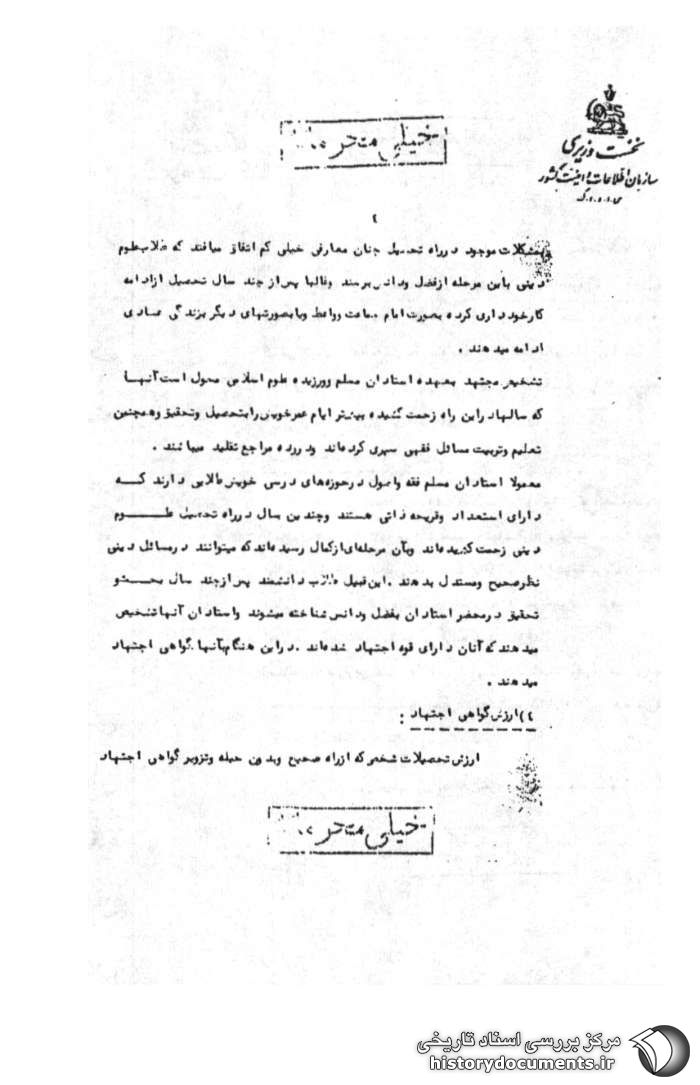 نخست وزیری
سازمان اطلاعات و امنیت کشور
خیلی محرمانه
٤
مشکلات موجود در راه تحصیل چنان معارفی خیلی کم اتفاق میافتد که طلاب علوم
دینی باین مرحله از فضل و دانش برسند و غالبا پس از چند سال تحصیل از ادامه
کار خود داری کرده بصورت امام جماعت و واعظ و یا بصورتهای دیگر بزندگی عادی
ادامه میدهند .
تشخیص مجتهد بعهده استادان مسلم و ورزیده علوم اسلامی محول است آنها
که سالها در این راه زحمت کشیده بیشتر ایام عمر خویش را بتحصیل و تحقیق و همچنین
تعلیم و تربیت مسائل فقهی سپری کرده‌اند و در رده مراجع تقلید میباشند .
معمولا استادان مسلم فقه و اصول در حوزه‌های درسی خویش طلابی دارند که
دارای استعداد و قریحه ذاتی هستند و چندین سال در راه تحصیل علوم
دینی زحمت کشیده‌اند و بآن مرحله‌ای از کمال رسیده‌اند که میتوانند در مسائل دینی
نظر صحیح و مستدل بدهند . این قبیل طلاب دانشمند پس از چند سال بحث و
تحقیق در محضر استادان بفضل و دانش شناخته میشوند و استادان آنها تشخیص
میدهند که آنان دارای قوه اجتهاد شده‌اند . در این هنگام بآنها گواهی اجتهاد
میدهند .
٤) ارزش گواهی اجتهاد :
ارزش تحصیلات شخصی که از راه صحیح و بدون حیله و تزویر گواهی اجتهاد
خیلی محرمانه
مرکز بررسی اسناد تاریخی
historydocuments.ir